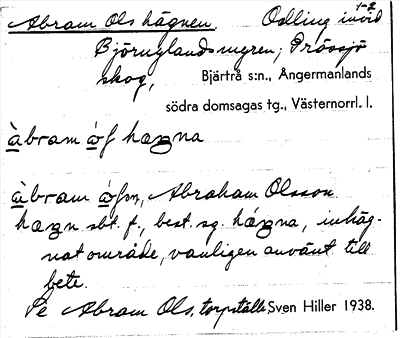 Abram Ols hägnen Odling invid 1-2
Björnylandsmyren; Prässjö
skog, Bjärtrå s:n., Ångermanlands
södra domsagas tg., Västernorrl. l.
àbram
àbram Abraham Olsson.
sbt. f., best. sg. inhäg-
nat område, vanligen använt till
bete.
Abram Ols, torpställe, Sven Hiller 1938.